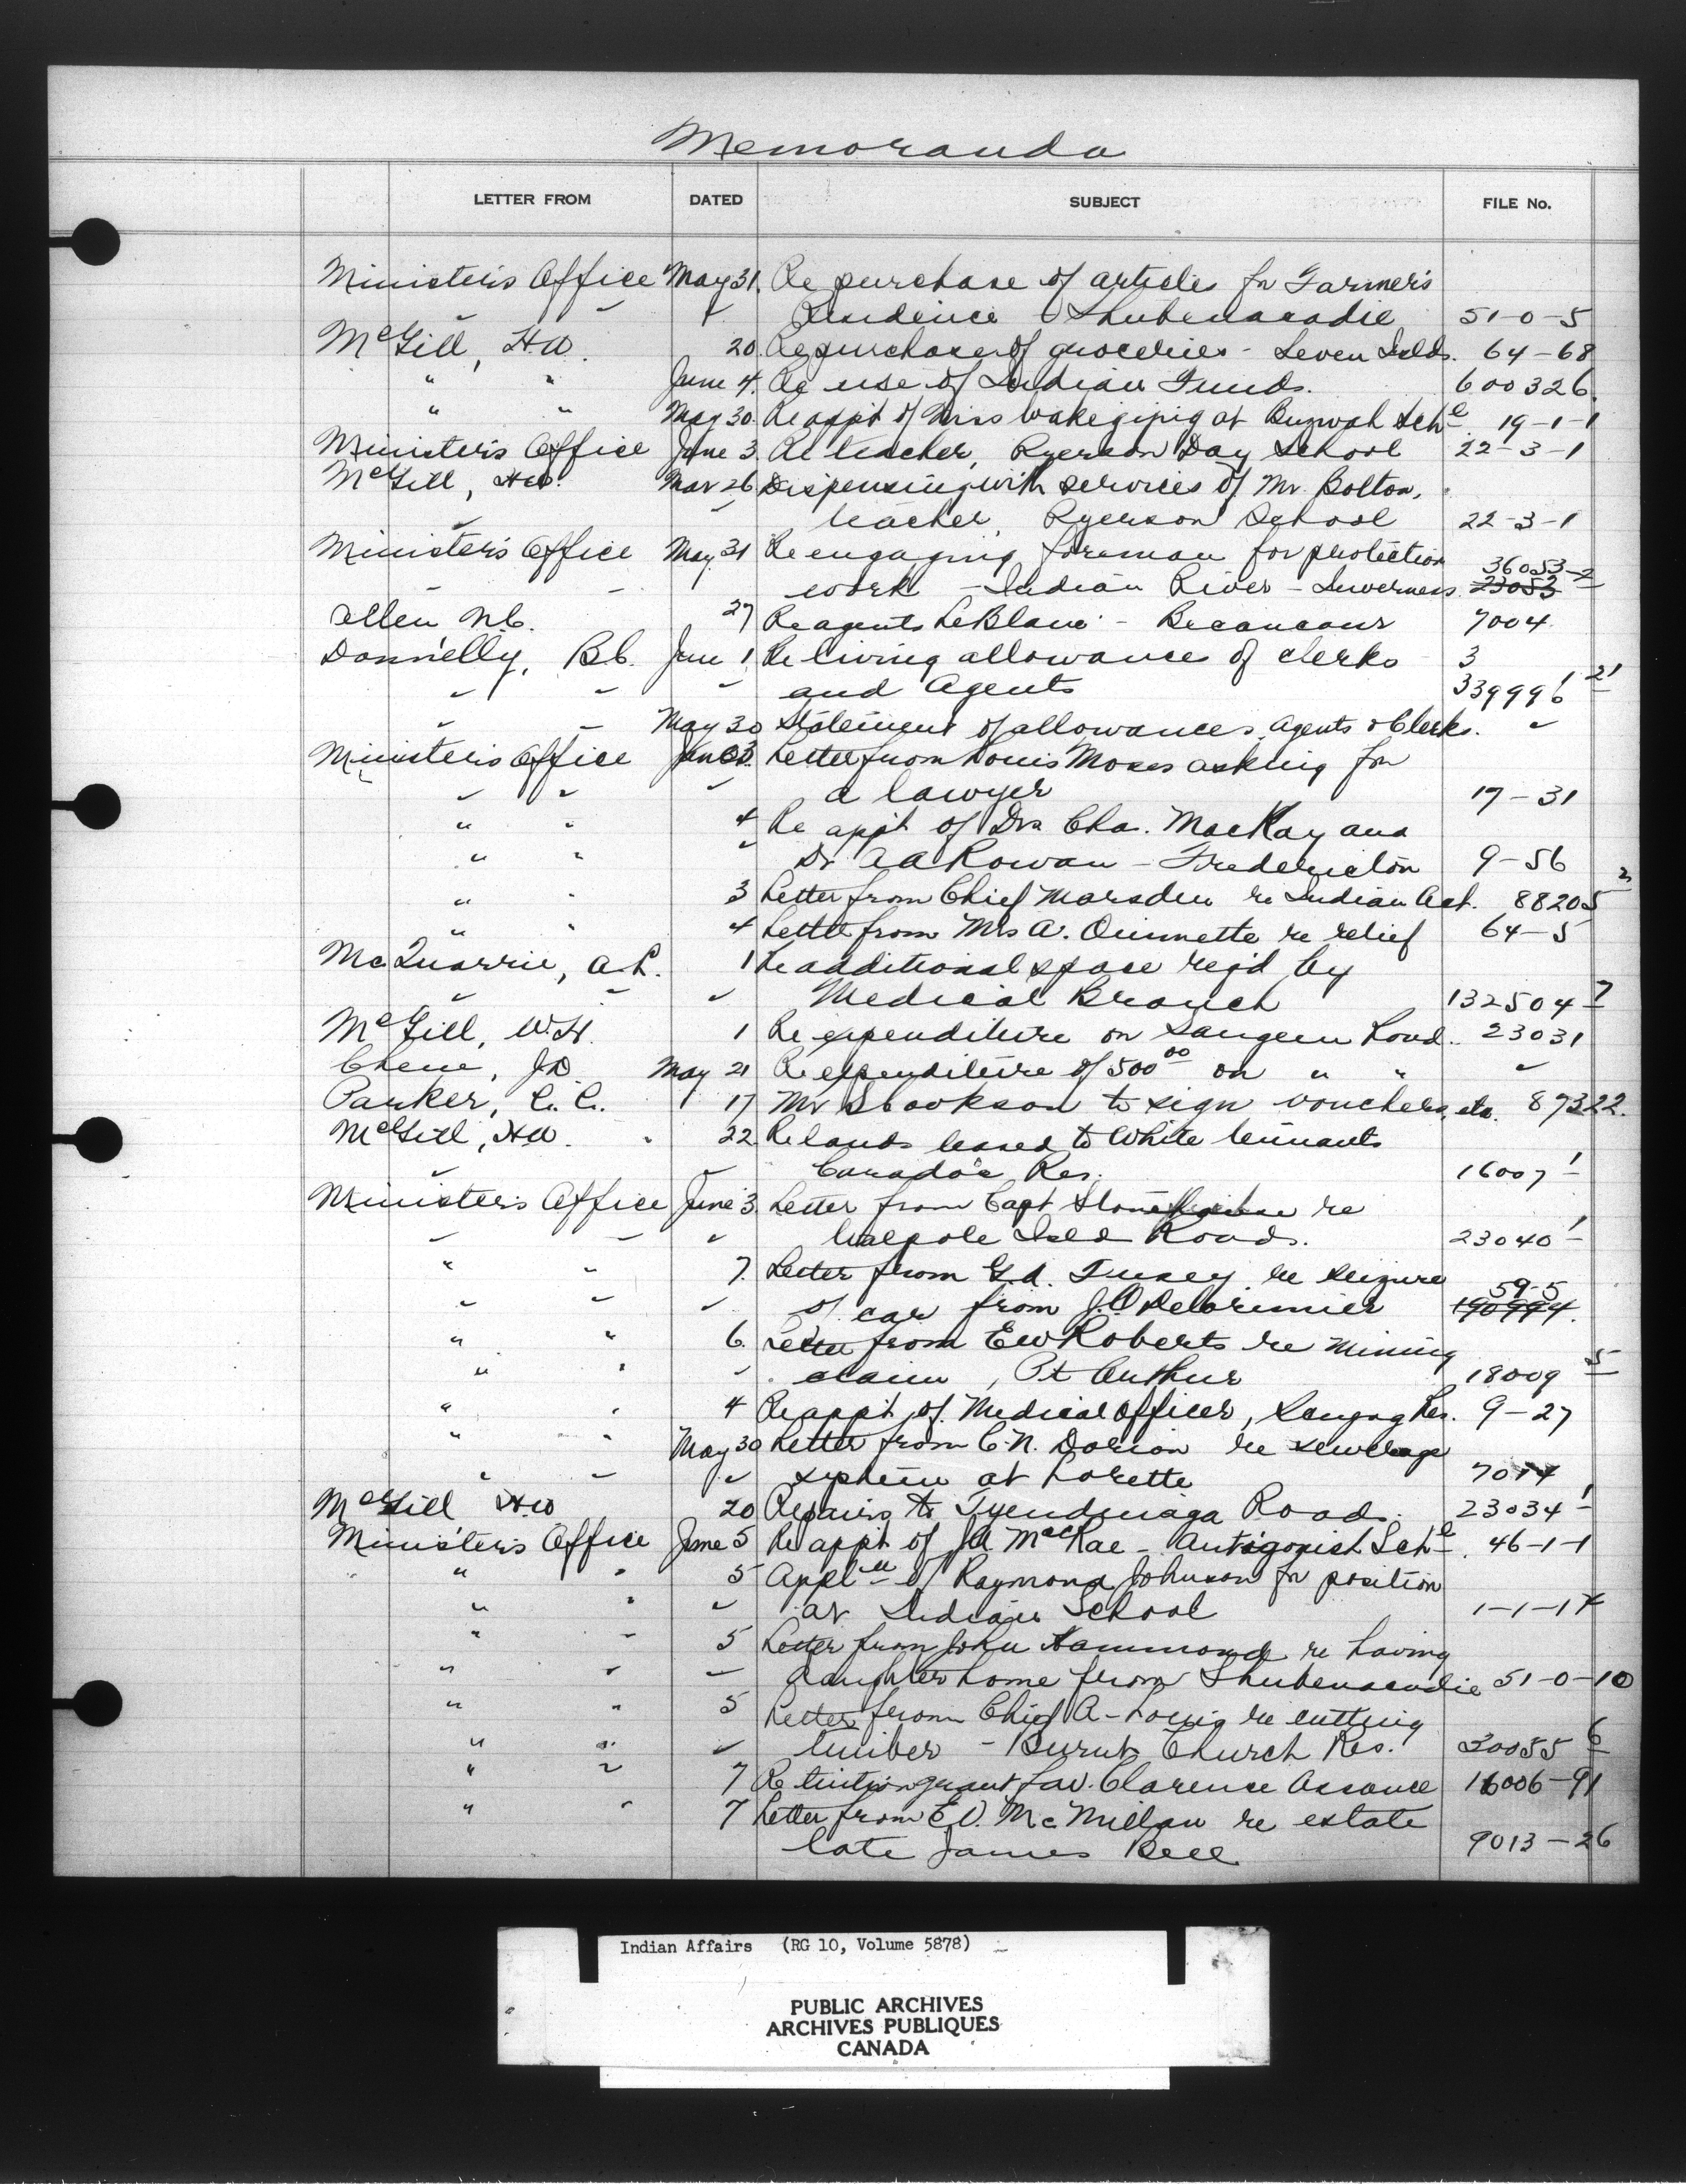 Memoranda
LETTER FROM DATED SUBJECT FILE No.
Minister's Office May 31. Re purchase of articles for Farmer's
" " " Residence Shubenacadie 51-0-5
McGill, H.W. 20. Re purchase of groceries - Seven Islds. 64-68
" " June 4. Re use of Indian Funds. 600326.
" " May 30. Re appt of Miss Wakegijig at Buzwah Schl. 19-1-1
Minister's Office June 3. Re teacher, Ryerson Day School 22-3-1
McGill, H.W. Mar 26 Dispensing with services of Mr. Bolton,
" " teacher, Ryerson School 22-3-1
Minister's Office May 31 Re engaging foreman for protection
" " work - Indian River - Inverness. 36053-2 23053
Allen N.C. 27 Re agents LeBlanc - Becancour 7004
Donnelly, B.C. June 1, Re living allowance of clerks 3
" " " and Agents 339996-1 21
" " May 30 Statement of allowances, Agents & Clerks. "
Minister's Office June 3. Letter from Louis Moses asking for
" " " a lawyer 17-31
" " 4 Re appt of Drs. Cha. MacKay and
" " " Dr A A Rowan - Fredericton 9-56
" " 3 Letter from Chief Marsden re Indian Act. 88205-2
" " 4 Letter from Mrs A. Ouimette re relief 64-5
McQuarrie, A.L. 1 Re additional space req'd by
" " " Medical Branch 132504-7
McGill, W.H. 1 Re expenditure on Saugeen Road. 23031
Chene, J.D. May 21 Re expenditure of 500 00 on " " "
Parker, C.C. 17 Mr Stockson to sign vouchers, etc. 87322.
McGill, H.W. 22 Re lands leased to White tennants
" " Caradoc Res. 16007-1
Minister's Office June 3. Letter from Capt Stonehouse re
" " " Walpole Isld Roads. 23040-1
" " 7. Letter from G.A. Tusey re seizure
" " " of car from J.O. Delorimier 59-5 190994.
" " 6. Letter from E W Roberts re mining
" " " claim, Pt Arthur 18009-5
" " 4 Re appt of Medical officer, Scugog Res. 9-27
" " May 30 Letter from C.N. Dorion re sewerage
" " " system at Lorette 7014
McGill H.W. 20 Repairs to Tyendinaga Road. 23034-1
Minister's Office June 5 Re appt of J.A. MacRae - Antigonish Schl. 46-1-1
" " 5 Appl'n of Raymond Johnson for position
" " " at Indian School 1-1-17
" " 5 Letter from John Hammond re having
" " " daughter home from Shubenacadie 51-0-10
" " 5 Letter from Chief A-Louis re cutting
" " " timber - Burnt Church Res. 30055-6
" " 7 Re tuition grant fav. Clarence Assance 16006-91
" " 7 Letter from E.D. McMillan re estate
late James Bell 9013-26
Indian Affairs (RG 10, Volume 5878)
PUBLIC ARCHIVES
ARCHIVES PUBLIQUES
CANADA